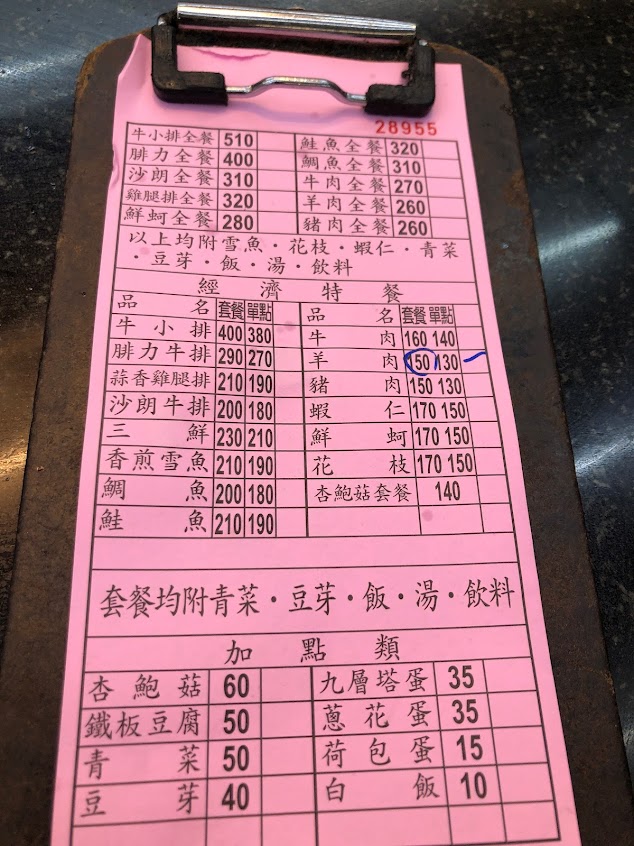 28955
牛小排全餐 510 鮭魚全餐 320
腓力全餐 400 鯛魚全餐 310
沙朗全餐 310 牛肉全餐 270
雞腿排全餐 320 羊肉全餐 260
鮮蚵全餐 280 豬肉全餐 260
以上均附雪魚・花枝・蝦仁・青菜
・豆芽・飯・湯・飲料
經濟特餐
品名 套餐 單點 品名 套餐 單點
牛小排 400 380 牛肉 160 140
腓力牛排 290 270 羊肉 150 130
蒜香雞腿排 210 190 豬肉 150 130
沙朗牛排 200 180 蝦仁 170 150
三鮮 230 210 鮮蚵 170 150
香煎雪魚 210 190 花枝 170 150
鯛魚 200 180 杏鮑菇套餐 140
鮭魚 210 190
套餐均附青菜・豆芽・飯・湯・飲料
加點類
杏鮑菇 60 九層塔蛋 35
鐵板豆腐 50 蔥花蛋 35
青菜 50 荷包蛋 15
豆芽 40 白飯 10